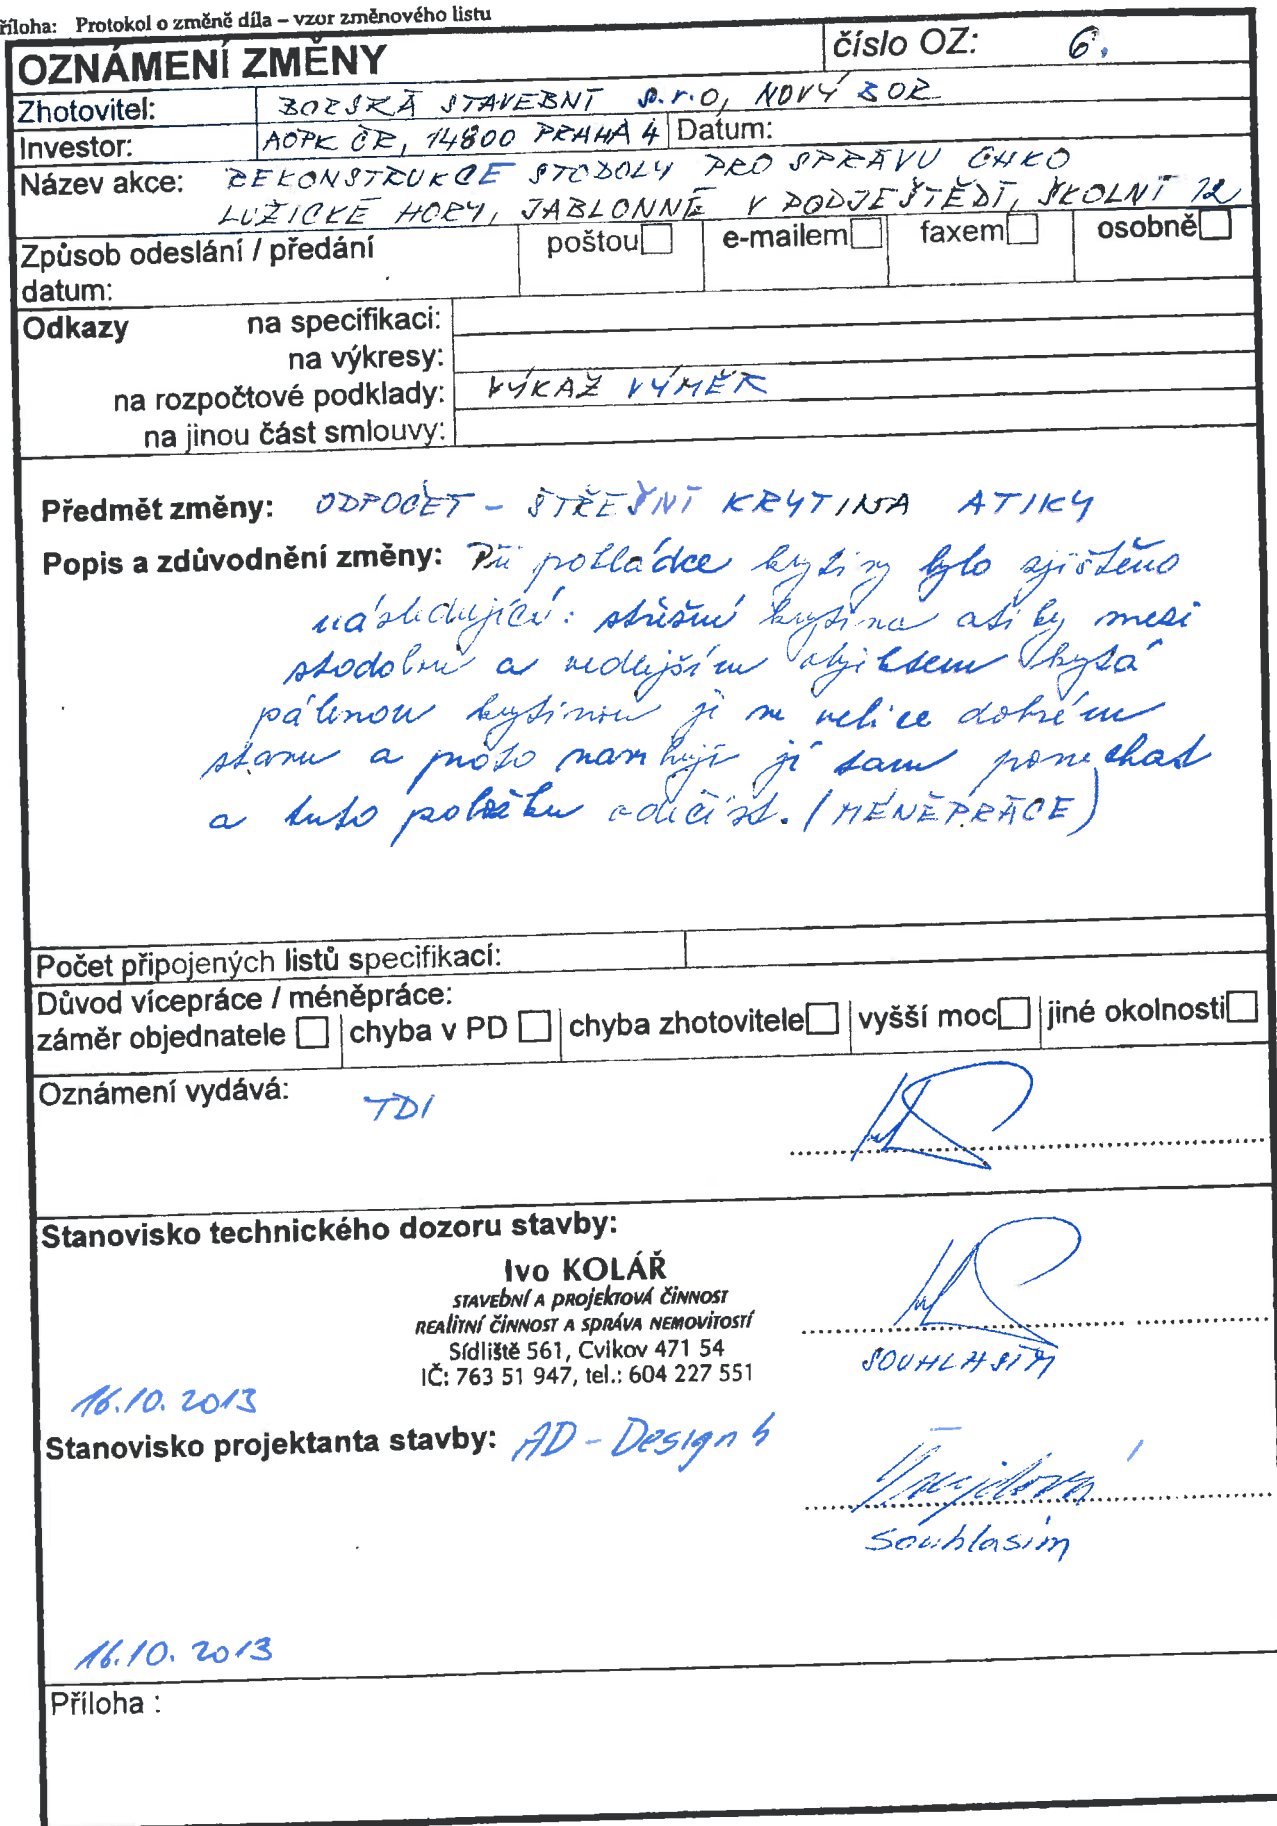 říloha: Protokol o změně díla – vzor změnového listu
OZNÁMENÍ ZMĚNY číslo OZ: 6.
Zhotovitel: BORSKÁ STAVEBNÍ s.r.o, NOVÝ BOR
Investor: AOPK ČR, 14800 PRAHA 4 Datum:
Název akce: REKONSTRUKCE STODOLY PRO SPRÁVU CHKO
LUŽICKÉ HORY, JABLONNÉ V PODJEŠTĚDÍ, ŠKOLNÍ 12
Způsob odeslání / předání poštou e-mailem faxem osobně
datum:
Odkazy na specifikaci:
na výkresy:
na rozpočtové podklady: VÝKAZ VÝMĚR
na jinou část smlouvy:
Předmět změny: ODPOČET – STŘEŠNÍ KRYTINA ATIKY
Popis a zdůvodnění změny: Při pokládce krytiny bylo zjištěno
následující: střešní krytina atiky mezi
stodolou a vedlejším objektem krytá
pálenou krytinou je ve velice dobrém
stavu a proto navrhuji jí tam ponechat
a tuto položku odečíst. (MÉNĚPRÁCE)
Počet připojených listů specifikací:
Důvod vícepráce / méněpráce:
záměr objednatele chyba v PD chyba zhotovitele vyšší moc jiné okolnosti
Oznámení vydává: TDI
Stanovisko technického dozoru stavby:
Ivo KOLÁŘ
STAVEBNÍ A PROJEKTOVÁ ČINNOST
REALITNÍ ČINNOST A SPRÁVA NEMOVITOSTÍ
Sídliště 561, Cvikov 471 54
IČ: 763 51 947, tel.: 604 227 551
SOUHLASÍM
16.10.2013
Stanovisko projektanta stavby: AD – Design
Souhlasím
16.10.2013
Příloha :